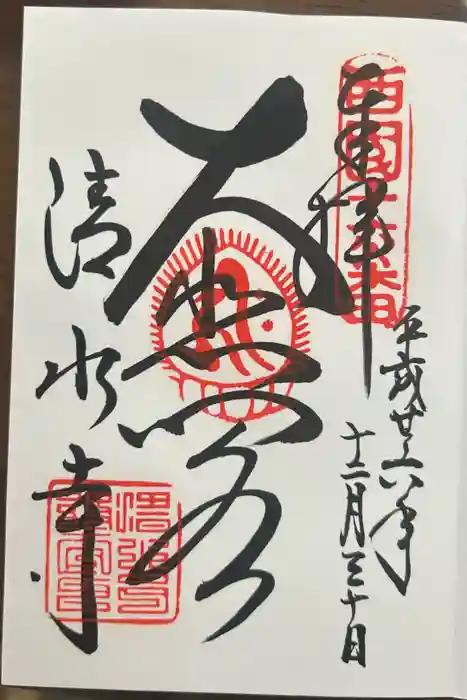 奉拝
西國十六番
平成廿六年
十二月三十日
大悲閣
清水寺